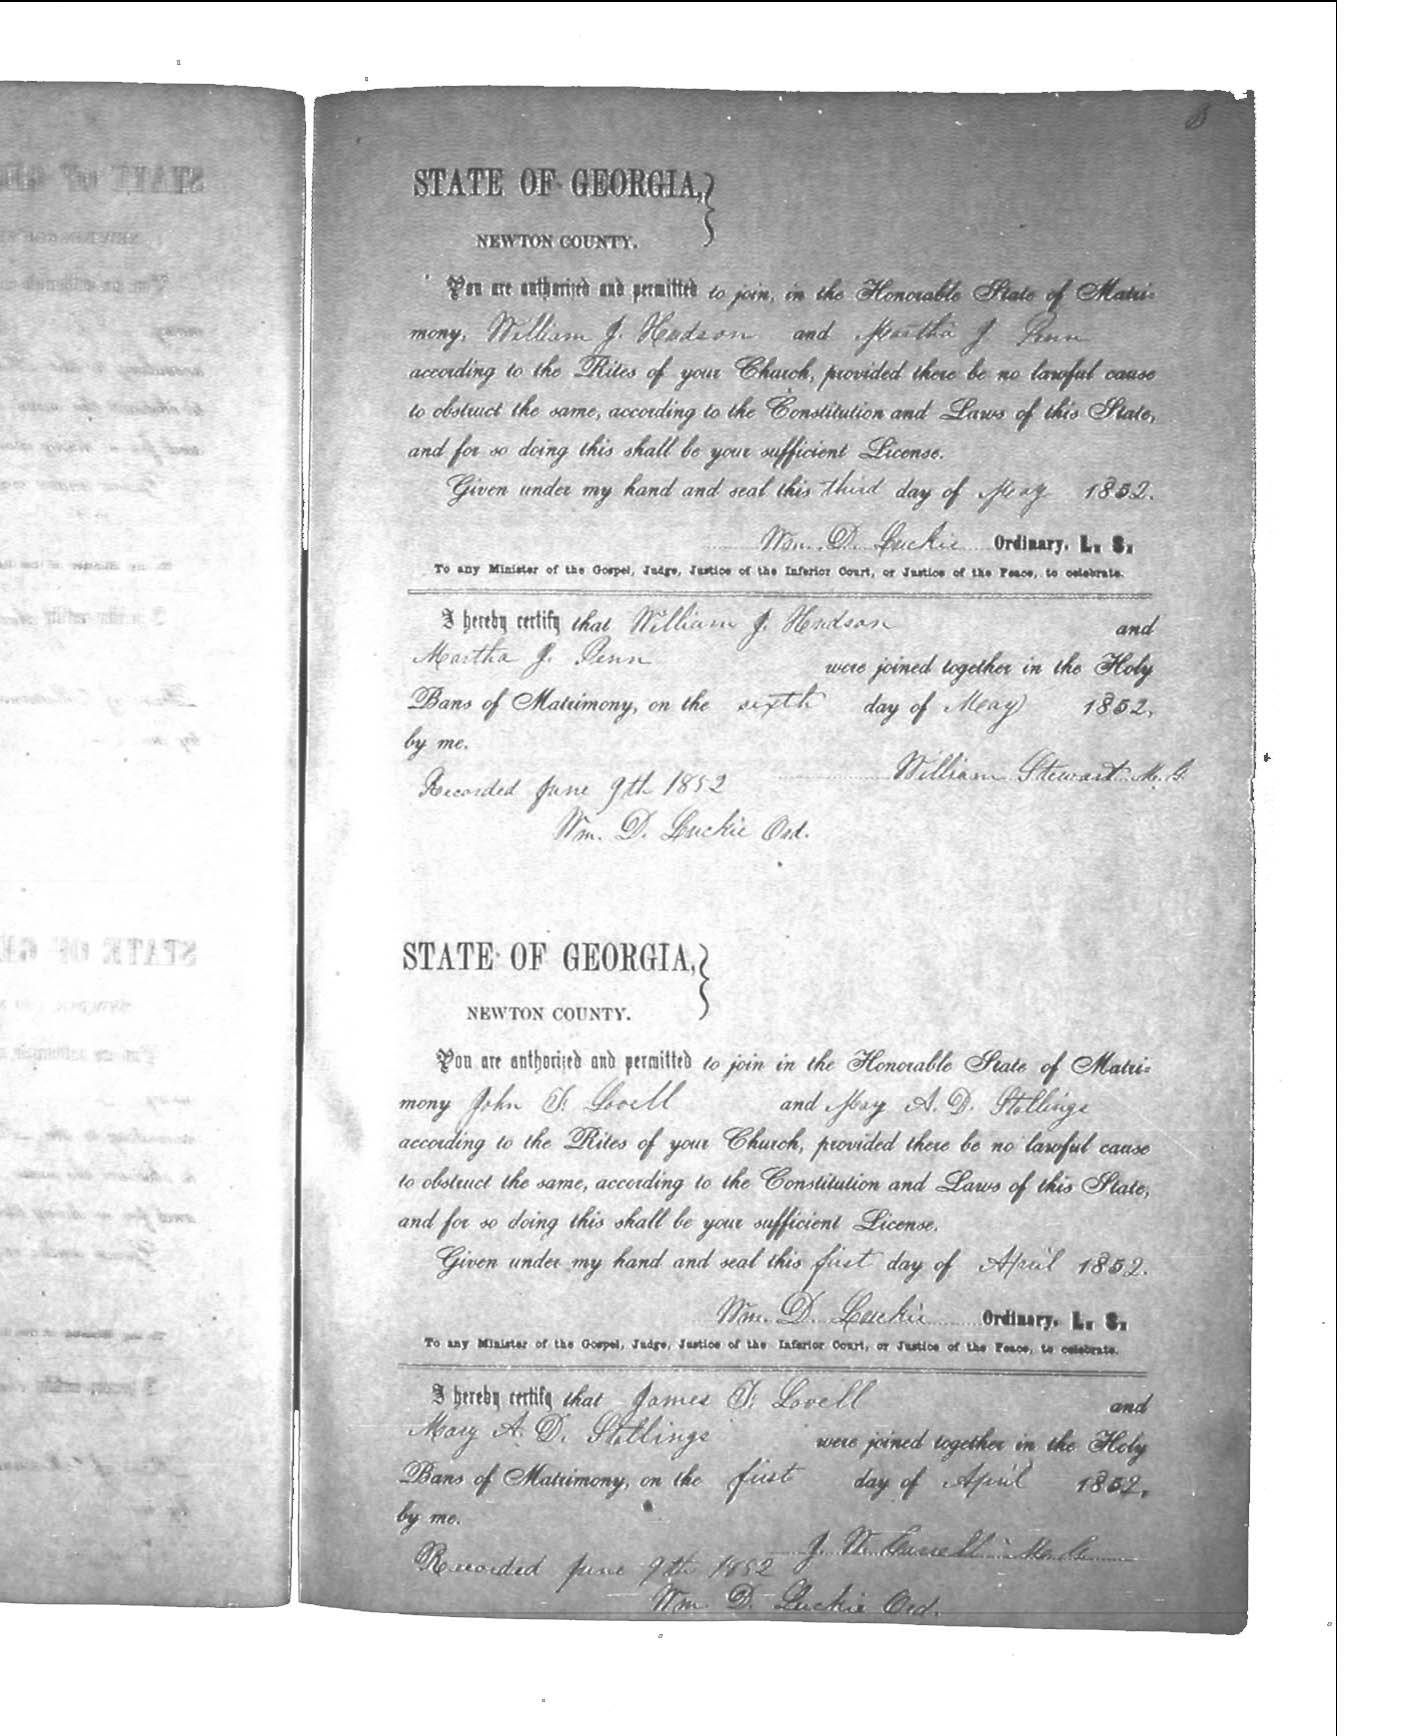 STATE OF GEORGIA,
NEWTON COUNTY.
You are authorized and permitted to join, in the Honorable State of Matri-
mony, William J. Hudson and Martha J Penn
according to the Rites of your Church, provided there be no lawful cause
to obstruct the same, according to the Constitution and Laws of this State,
and for so doing this shall be your sufficient License.
Given under my hand and seal this third day of May 1852.
Wm. D. Luckie Ordinary. L. S.
To any Minister of the Gospel, Judge, Justice of the Inferior Court, or Justice of the Peace, to celebrate.
I hereby certify that William J. Hudson and
Martha J. Penn were joined together in the Holy
Bans of Matrimony, on the sixth day of May 1852,
by me.
William Stewart M. G.
Recorded June 9th 1852
Wm. D. Luckie Ord.
STATE OF GEORGIA,
NEWTON COUNTY.
You are authorized and permitted to join in the Honorable State of Matri-
mony John F. Lovell and May A. D. Stallings
according to the Rites of your Church, provided there be no lawful cause
to obstruct the same, according to the Constitution and Laws of this State,
and for so doing this shall be your sufficient License.
Given under my hand and seal this first day of April 1852.
Wm. D. Luckie Ordinary. L. S.
To any Minister of the Gospel, Judge, Justice of the Inferior Court, or Justice of the Peace, to celebrate.
I hereby certify that James F. Lovell and
Mary A. D. Stallings were joined together in the Holy
Bans of Matrimony, on the first day of April 1852,
by me.
J. W. M. G.
Recorded June 9th 1852
Wm. D. Luckie Ord.